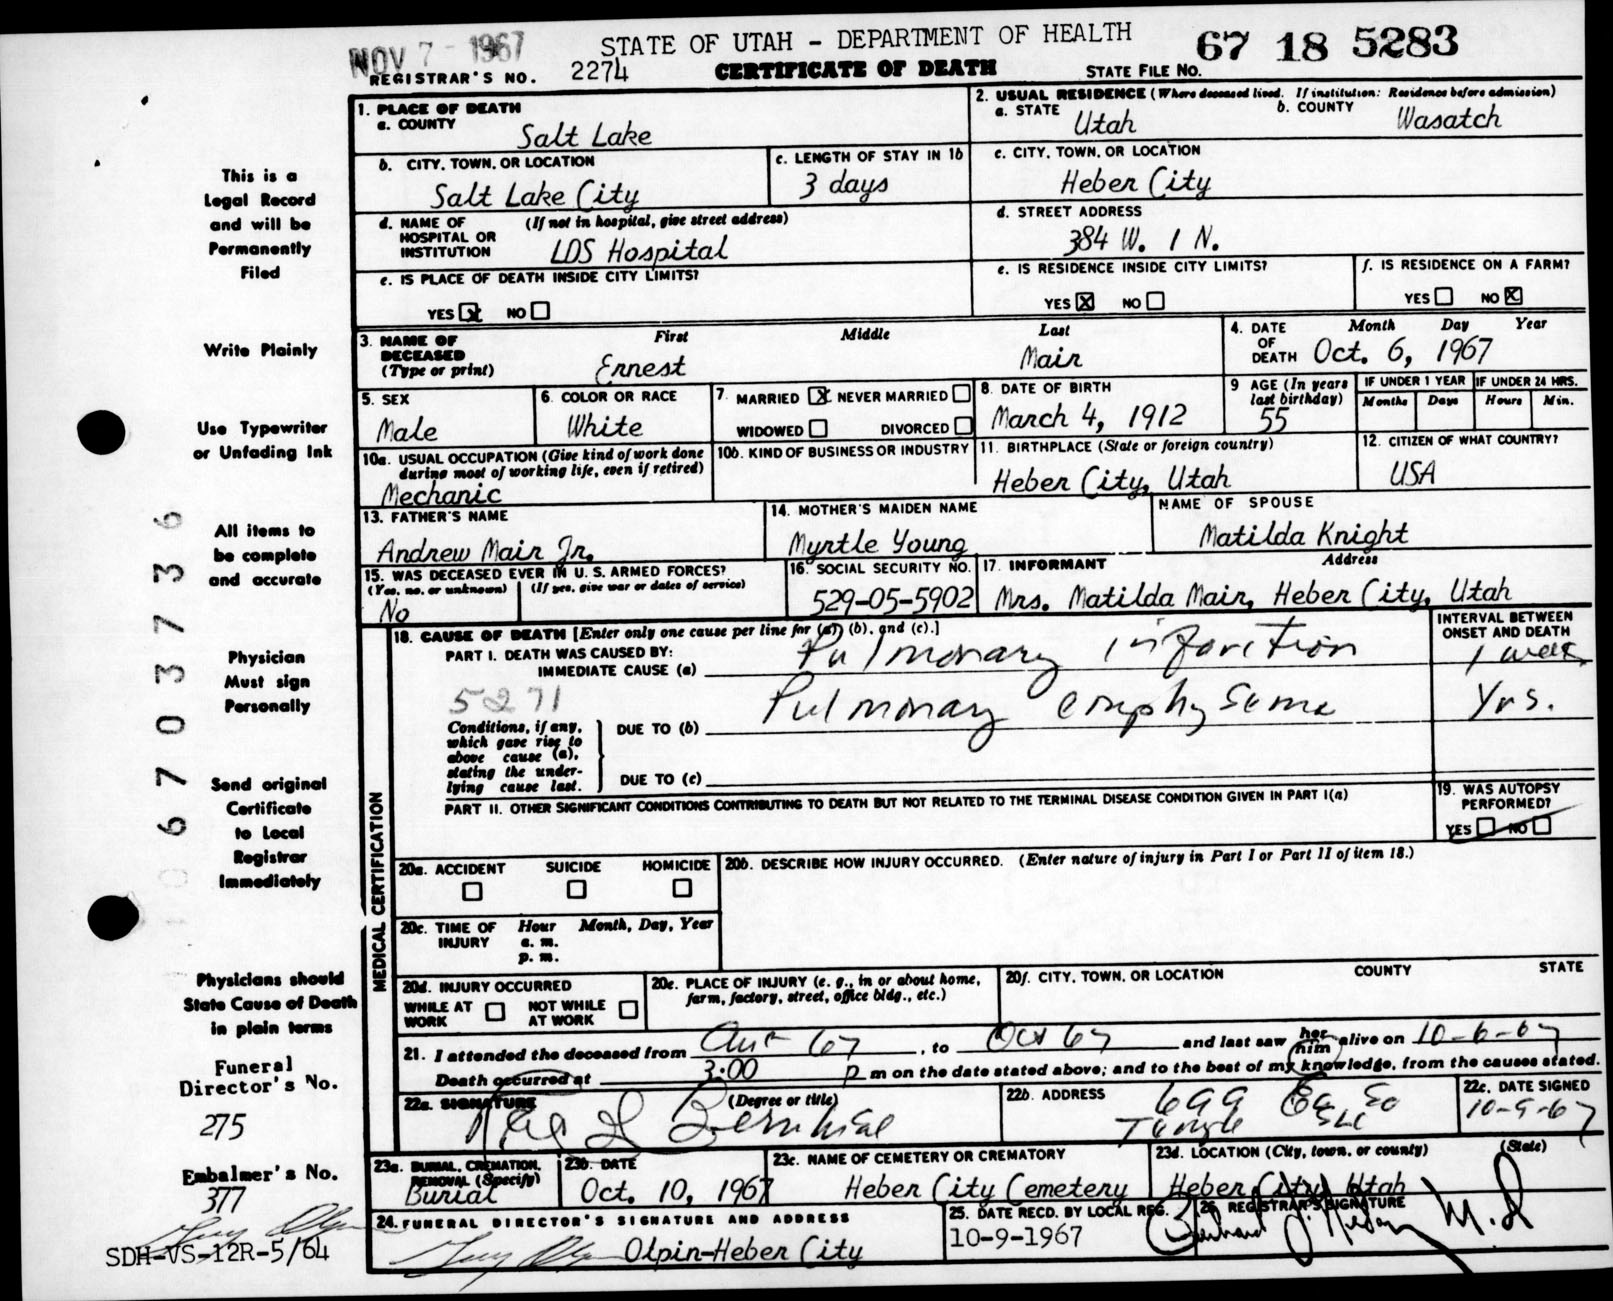 NOV 7 - 1967
STATE OF UTAH - DEPARTMENT OF HEALTH
67 18 5283
REGISTRAR'S NO. 2274
CERTIFICATE OF DEATH
STATE FILE NO.
1. PLACE OF DEATH
a. COUNTY
Salt Lake
2. USUAL RESIDENCE (Where deceased lived. If institution: Residence before admission)
a. STATE
Utah
b. COUNTY
Wasatch
b. CITY, TOWN, OR LOCATION
Salt Lake City
c. LENGTH OF STAY IN 1b
3 days
c. CITY, TOWN, OR LOCATION
Heber City
d. NAME OF HOSPITAL OR INSTITUTION
(If not in hospital, give street address)
LDS Hospital
d. STREET ADDRESS
384 W. 1 N.
e. IS PLACE OF DEATH INSIDE CITY LIMITS?
YES X NO
e. IS RESIDENCE INSIDE CITY LIMITS?
YES X NO
f. IS RESIDENCE ON A FARM?
YES NO X
3. NAME OF DECEASED
(Type or print)
First
Middle
Last
Ernest
Mair
4. DATE OF DEATH
Month Day Year
Oct. 6, 1967
5. SEX
Male
6. COLOR OR RACE
White
7. MARRIED X NEVER MARRIED
WIDOWED DIVORCED
8. DATE OF BIRTH
March 4, 1912
9 AGE (In years last birthday)
55
IF UNDER 1 YEAR
Months Days
IF UNDER 24 HRS.
Hours Min.
10a. USUAL OCCUPATION (Give kind of work done during most of working life, even if retired)
Mechanic
10b. KIND OF BUSINESS OR INDUSTRY
11. BIRTHPLACE (State or foreign country)
Heber City, Utah
12. CITIZEN OF WHAT COUNTRY?
USA
13. FATHER'S NAME
Andrew Mair Jr.
14. MOTHER'S MAIDEN NAME
Myrtle Young
NAME OF SPOUSE
Matilda Knight
15. WAS DECEASED EVER IN U. S. ARMED FORCES?
(Yes, no, or unknown)
(If yes, give war or dates of service)
No
16. SOCIAL SECURITY NO.
529-05-5902
17. INFORMANT
Address
Mrs. Matilda Mair, Heber City, Utah
MEDICAL CERTIFICATION
18. CAUSE OF DEATH [Enter only one cause per line for (a), (b), and (c).]
INTERVAL BETWEEN ONSET AND DEATH
PART I. DEATH WAS CAUSED BY:
IMMEDIATE CAUSE (a)
Pulmonary infarction
1 week
5271
Conditions, if any, which gave rise to above cause (a), stating the underlying cause last.
DUE TO (b)
Pulmonary emphysema
Yrs.
DUE TO (c)
PART II. OTHER SIGNIFICANT CONDITIONS CONTRIBUTING TO DEATH BUT NOT RELATED TO THE TERMINAL DISEASE CONDITION GIVEN IN PART I(a)
19. WAS AUTOPSY PERFORMED?
YES NO
20a. ACCIDENT SUICIDE HOMICIDE
20b. DESCRIBE HOW INJURY OCCURRED. (Enter nature of injury in Part I or Part II of item 18.)
20c. TIME OF INJURY
Hour Month, Day, Year
a. m.
p. m.
20d. INJURY OCCURRED
WHILE AT WORK
NOT WHILE AT WORK
20e. PLACE OF INJURY (e. g., in or about home, farm, factory, street, office bldg., etc.)
20f. CITY, TOWN, OR LOCATION COUNTY STATE
21. I attended the deceased from 67, to Oct 67 and last saw her him alive on 10-6-67
Death occurred at 3:00 p m on the date stated above; and to the best of my knowledge, from the causes stated.
22a. SIGNATURE
(Degree or title)
22b. ADDRESS
22c. DATE SIGNED
10-9-67
23a. BURIAL, CREMATION, REMOVAL (Specify)
Burial
23b. DATE
Oct. 10, 1967
23c. NAME OF CEMETERY OR CREMATORY
Heber City Cemetery
23d. LOCATION (City, town, or county) (State)
Heber City, Utah
24. FUNERAL DIRECTOR'S SIGNATURE AND ADDRESS
Olpin-Heber City
25. DATE RECD. BY LOCAL REG.
10-9-1967
26. REGISTRAR'S SIGNATURE
M.D
This is a
Legal Record
and will be
Permanently
Filed
Write Plainly
Use Typewriter
or Unfading Ink
All items to
be complete
and accurate
Physician
Must sign
Personally
Send original
Certificate
to Local
Registrar
Immediately
Physicians should
State Cause of Death
in plain terms
Funeral
Director's No.
275
Embalmer's No.
377
SDH-VS-12R-5/64
67037736